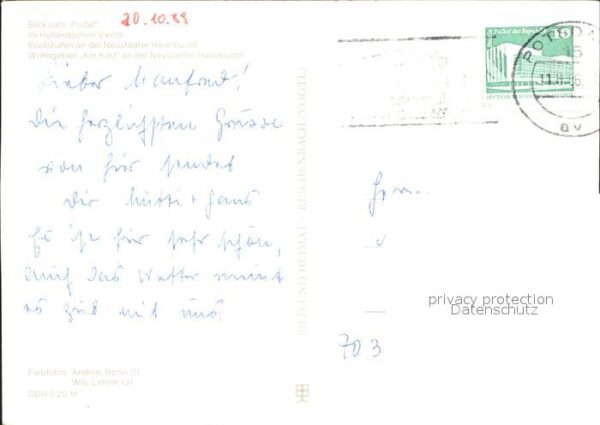 20.10.89
Blick zum „Portal"
im Holländischen Viertel
Bootshafen an der Neustädter Havelbucht
Wohngebiet „Am Kiez" an der Neustädter Havelbucht
Lieber Manfred!
Die herzlichsten Grüsse
von hier sendet
Dir Mutti + Hans
Es ist hier sehr schön,
auch das Wetter meint
es gut mit uns.
Farbfotos: Andree, Berlin (1)
DDR 0,20 M
BILD UND HEIMAT REICHENBACH
10
POTSDAM
15
av
Herrn
703
privacy protection
Datenschutz